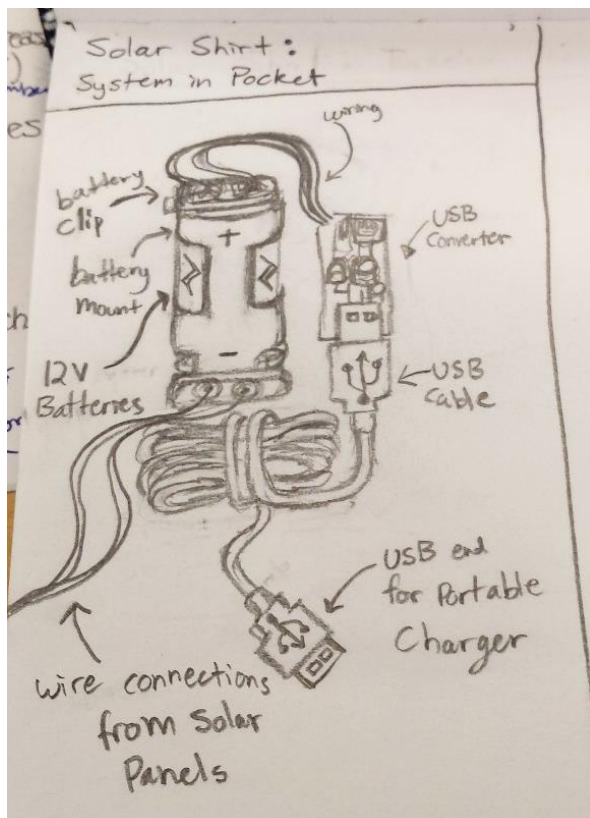 Solar Shirt:
System in Pocket
wiring
battery
clip
USB
Converter
battery
mount
+
12V
Batteries
-
USB
Cable
USB end
for Portable
Charger
wire connections
from Solar
Panels